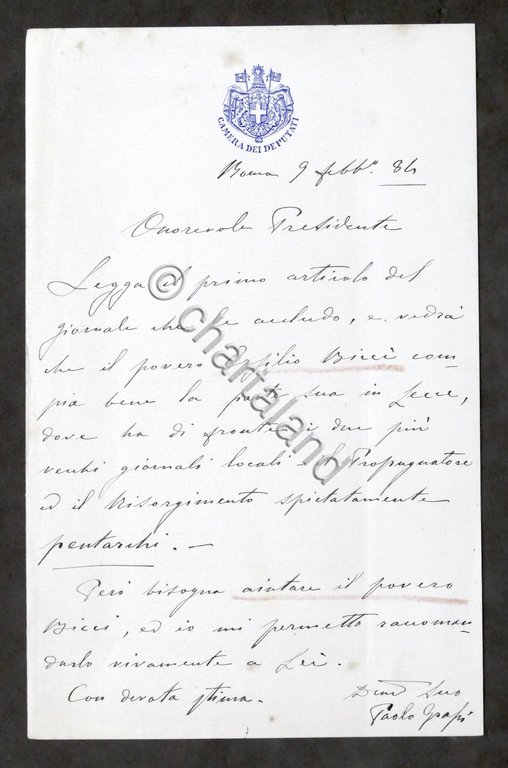 CAMERA DEI DEPUTATI
Roma 9 febb.º 84
Onorevole Presidente
Legga il primo articolo del
giornale che le accludo, e vedrà
che il povero Ersilio Bicci com-
pia bene la parte sua in Lecce,
dove ha di fronte i due più
vecchi giornali locali il Propugnatore
ed il Risorgimento spietatamente
pentarchi. —
Però bisogna aiutare il povero
Bicci, ed io mi permetto raccoman-
darlo vivamente a Lei.
Con devota stima.
Suo
Paolo
© chartaland